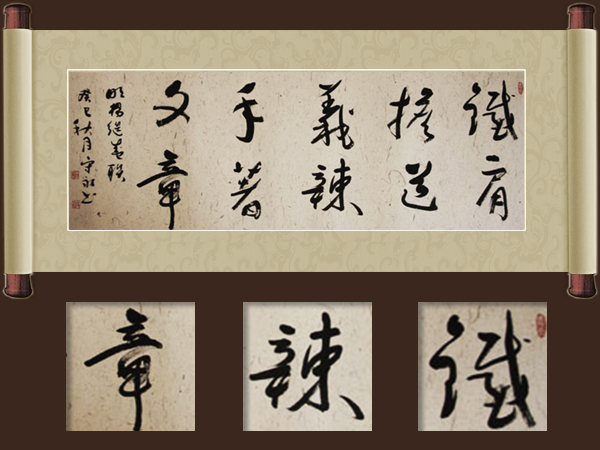 鐵肩
擔道
義辣
手著
文章
明楊繼盛聯
癸巳秋月守书
章
辣
鐵